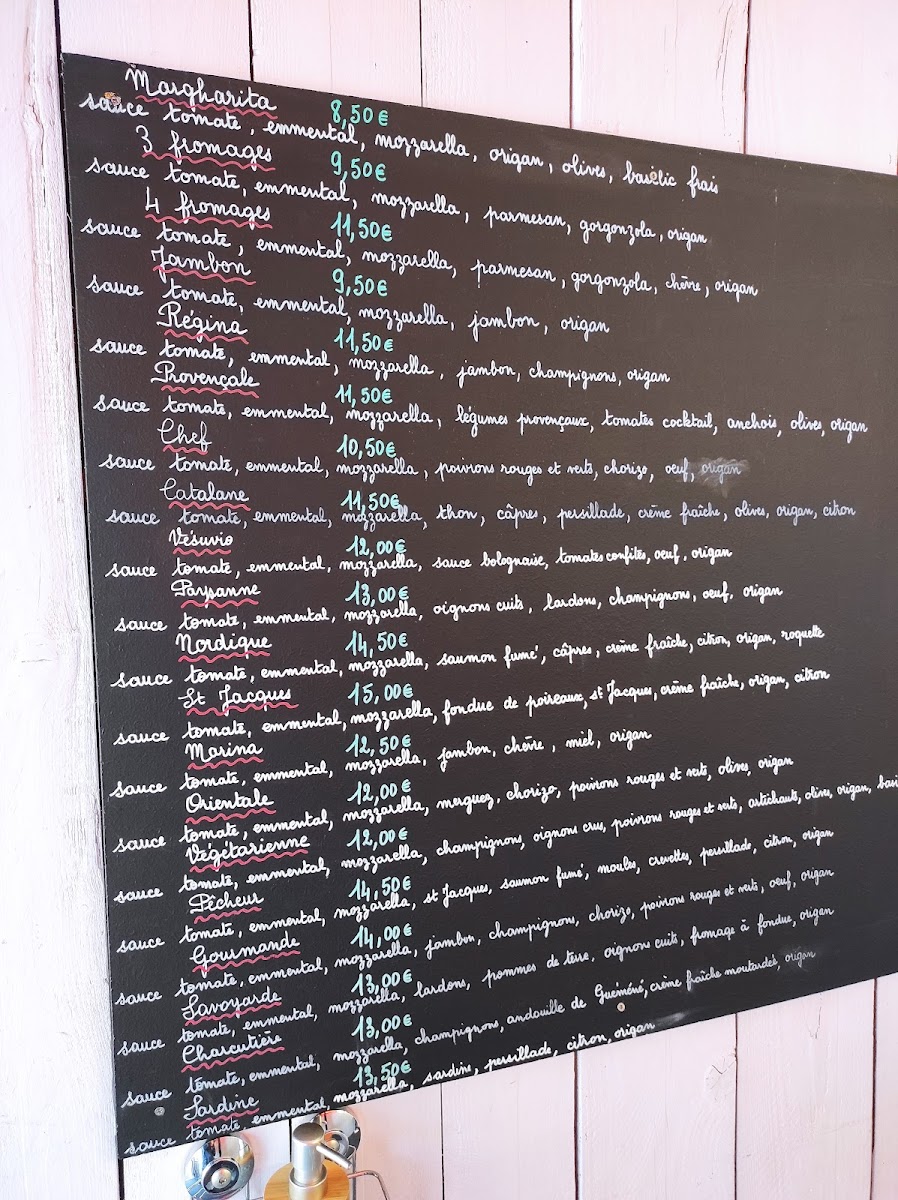 Margharita 8,50€
sauce tomate, emmental, mozzarella, origan, olives, basilic frais
3 fromages 9,50€
sauce tomate, emmental, mozzarella, parmesan, gorgonzola, origan
4 fromages 11,50€
sauce tomate, emmental, mozzarella, parmesan, gorgonzola, chèvre, origan
Jambon 9,50€
sauce tomate, emmental, mozzarella, jambon, origan
Régina 11,50€
sauce tomate, emmental, mozzarella, jambon, champignons, origan
Provençale 11,50€
sauce tomate, emmental, mozzarella, légumes provençaux, tomates cocktail, anchois, olives, origan
Chef 10,50€
sauce tomate, emmental, mozzarella, poivrons rouges et verts, chorizo, oeuf, origan
Catalane 11,50€
sauce tomate, emmental, mozzarella, thon, câpres, persillade, crème fraîche, olives, origan, citron
Vésuvio 12,00€
sauce tomate, emmental, mozzarella, sauce bolognaise, tomates confites, oeuf, origan
Paysanne 13,00€
sauce tomate, emmental, mozzarella, oignons cuits, lardons, champignons, oeuf, origan
Nordique 14,50€
sauce tomate, emmental, mozzarella, saumon fumé, câpres, crème fraîche, citron, origan, roquette
St Jacques 15,00€
sauce tomate, emmental, mozzarella, fondue de poireaux, st Jacques, crème fraîche, origan, citron
Marina 12,50€
sauce tomate, emmental, mozzarella, jambon, chèvre, miel, origan
Orientale 12,00€
sauce tomate, emmental, mozzarella, merguez, chorizo, poivrons rouges et verts, olives, origan
Végétarienne 12,00€
sauce tomate, emmental, mozzarella, champignons, oignons crus, poivrons rouges et verts, artichauts, olives, origan, basi
Pêcheur 14,50€
sauce tomate, emmental, mozzarella, st Jacques, saumon fumé, moules, crevettes, persillade, citron, origan
Gourmande 14,00€
sauce tomate, emmental, mozzarella, jambon, champignons, chorizo, poivrons rouges et verts, oeuf, origan
Savoyarde 13,00€
sauce tomate, emmental, mozzarella, lardons, pommes de terre, oignons cuits, fromage à fondue, origan
Charcutière 13,00€
sauce tomate, emmental, mozzarella, champignons, andouille de Guéméné, crème fraîche moutardet, origan
Sardine 13,50€
sauce tomate, emmental, mozzarella, sardine, persillade, citron, origan